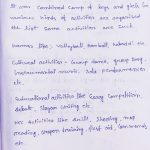 It was Combined Camp of boys and girls in
various kinds of activities are organised
the list some activities are such
Games like: Volleyball, Football, kabaddi etc.
Cultural activities - Group dance, group song,
instrumental music, solo performances
etc.
Educational activities like Essay Competition
debate, Slogan writing etc
NCC Activities like drill, Shooting, map
reading, weapon training, first aid, commands
etc.